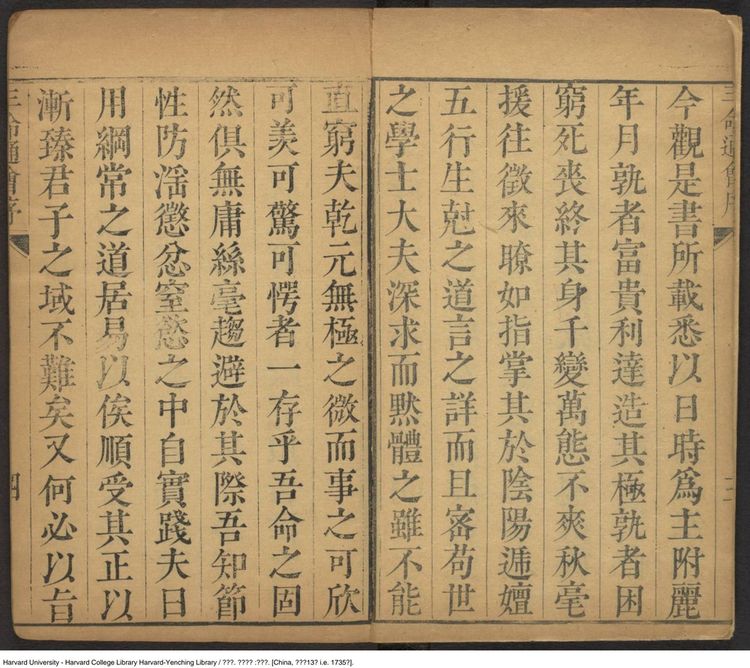 三命通會序
今觀是書所載悉以日時爲主附麗
年月孰者富貴利達造其極孰者困
窮死喪終其身千變萬態不爽秋毫
援往徵來瞭如指掌其於陰陽遞嬗
五行生尅之道言之詳而且密苟世
之學士大夫深求而默體之雖不能
直窮夫乾元無極之微而事之可欣
可羡可驚可愕者一存乎吾命之固
然俱無庸絲毫趨避於其際吾知節
性防淫懲忿窒慾之中自實踐夫日
用綱常之道居易以俟順受其正以
漸臻君子之域不難矣又何必以吉
三命通會序
四
Harvard University - Harvard College Library Harvard-Yenching Library / ???. ???? :???. [China, ???13? i.e. 1735?].